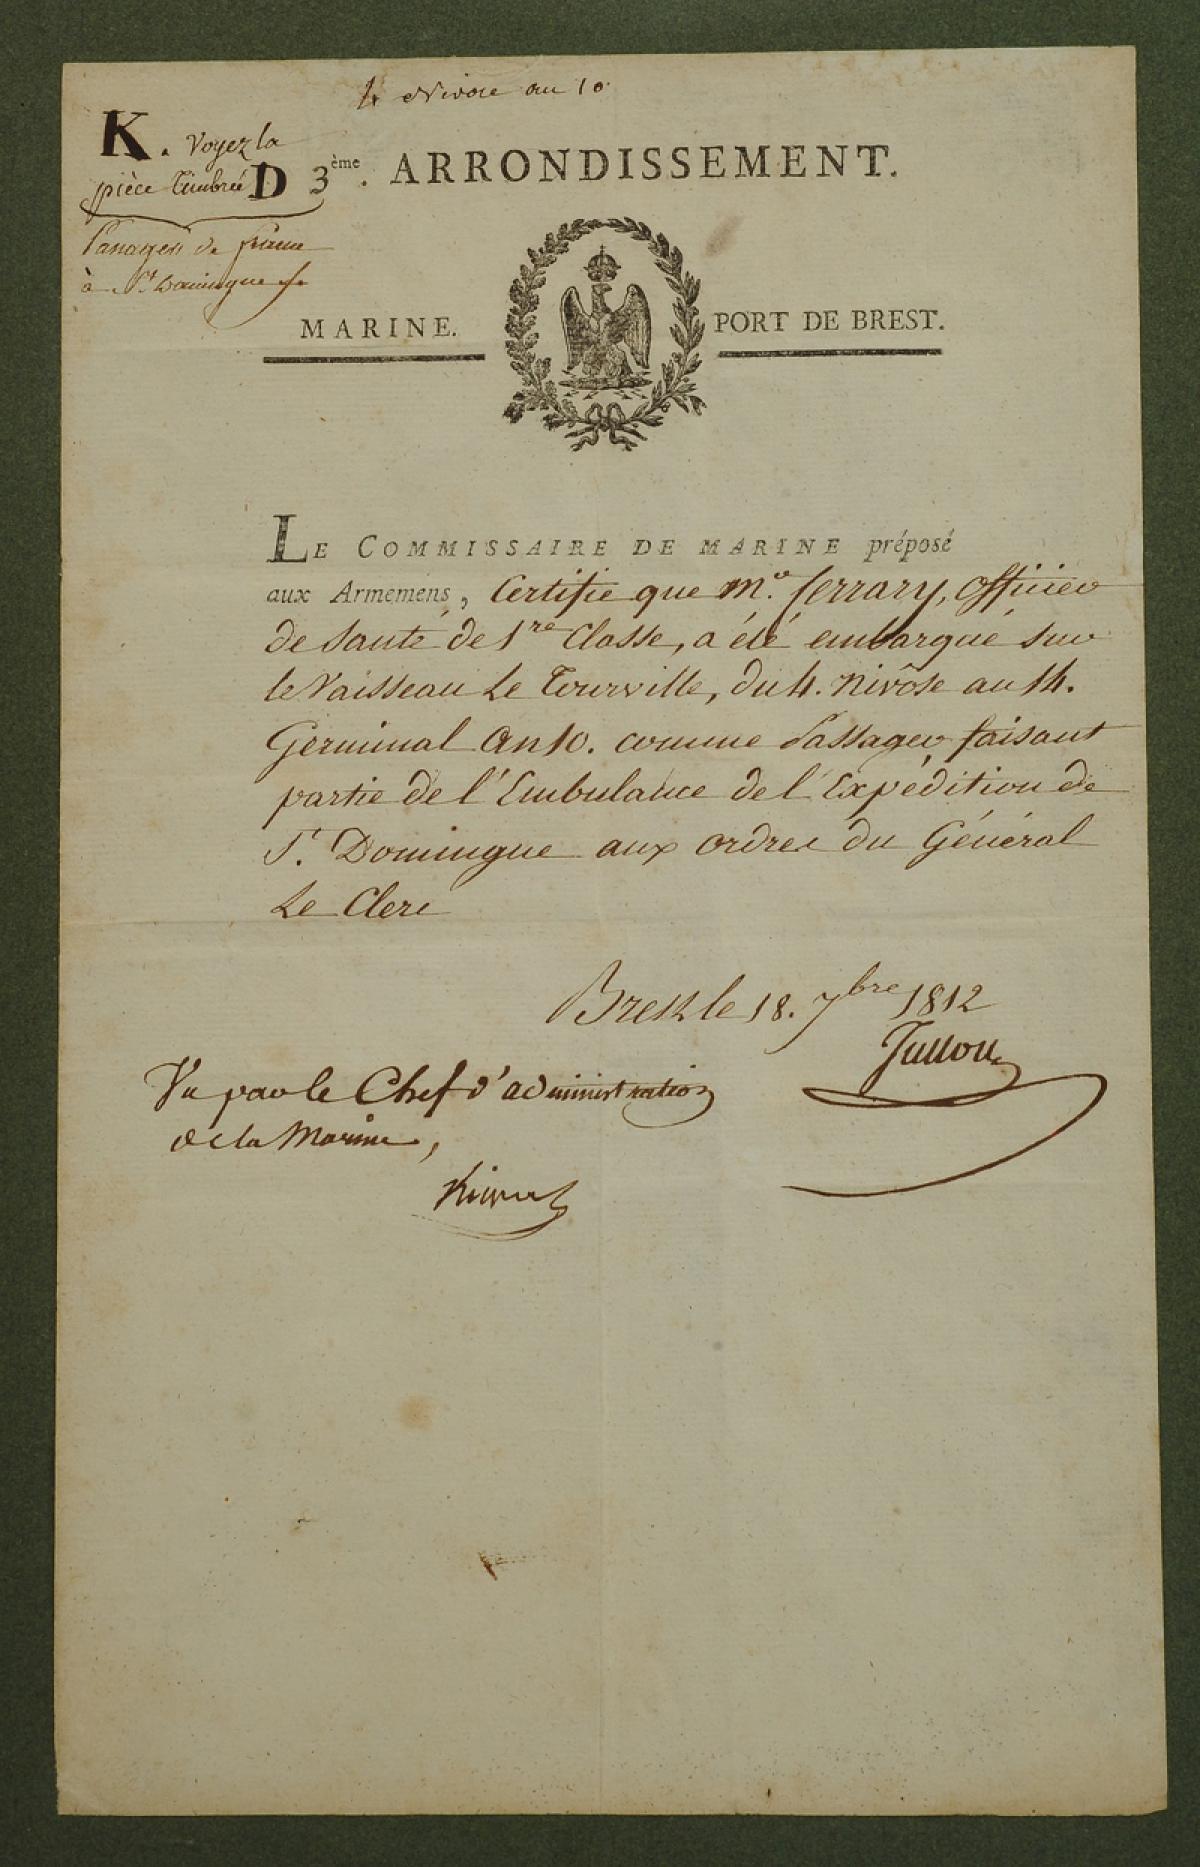 4 Nivose an 10
K. Voyez la
pièce timbrée D
Passager de france
à St. Domingue
3ème. ARRONDISSEMENT.
MARINE. PORT DE BREST.
LE COMMISSAIRE DE MARINE préposé
aux Armemens, Certifie que Mr. ferrary, officier
de santé de 1re Classe, a été embarqué sur
le Vaisseau Le Tourville, du 4. Nivôse au 14.
Germinal An 10. comme Passager faisant
partie de l'Embulance de l'Expédition de
St. Domingue aux ordres du Général
Le Clerc
Brest le 18. 7bre 1812
Vu par le Chef d'administration
de la Marine,